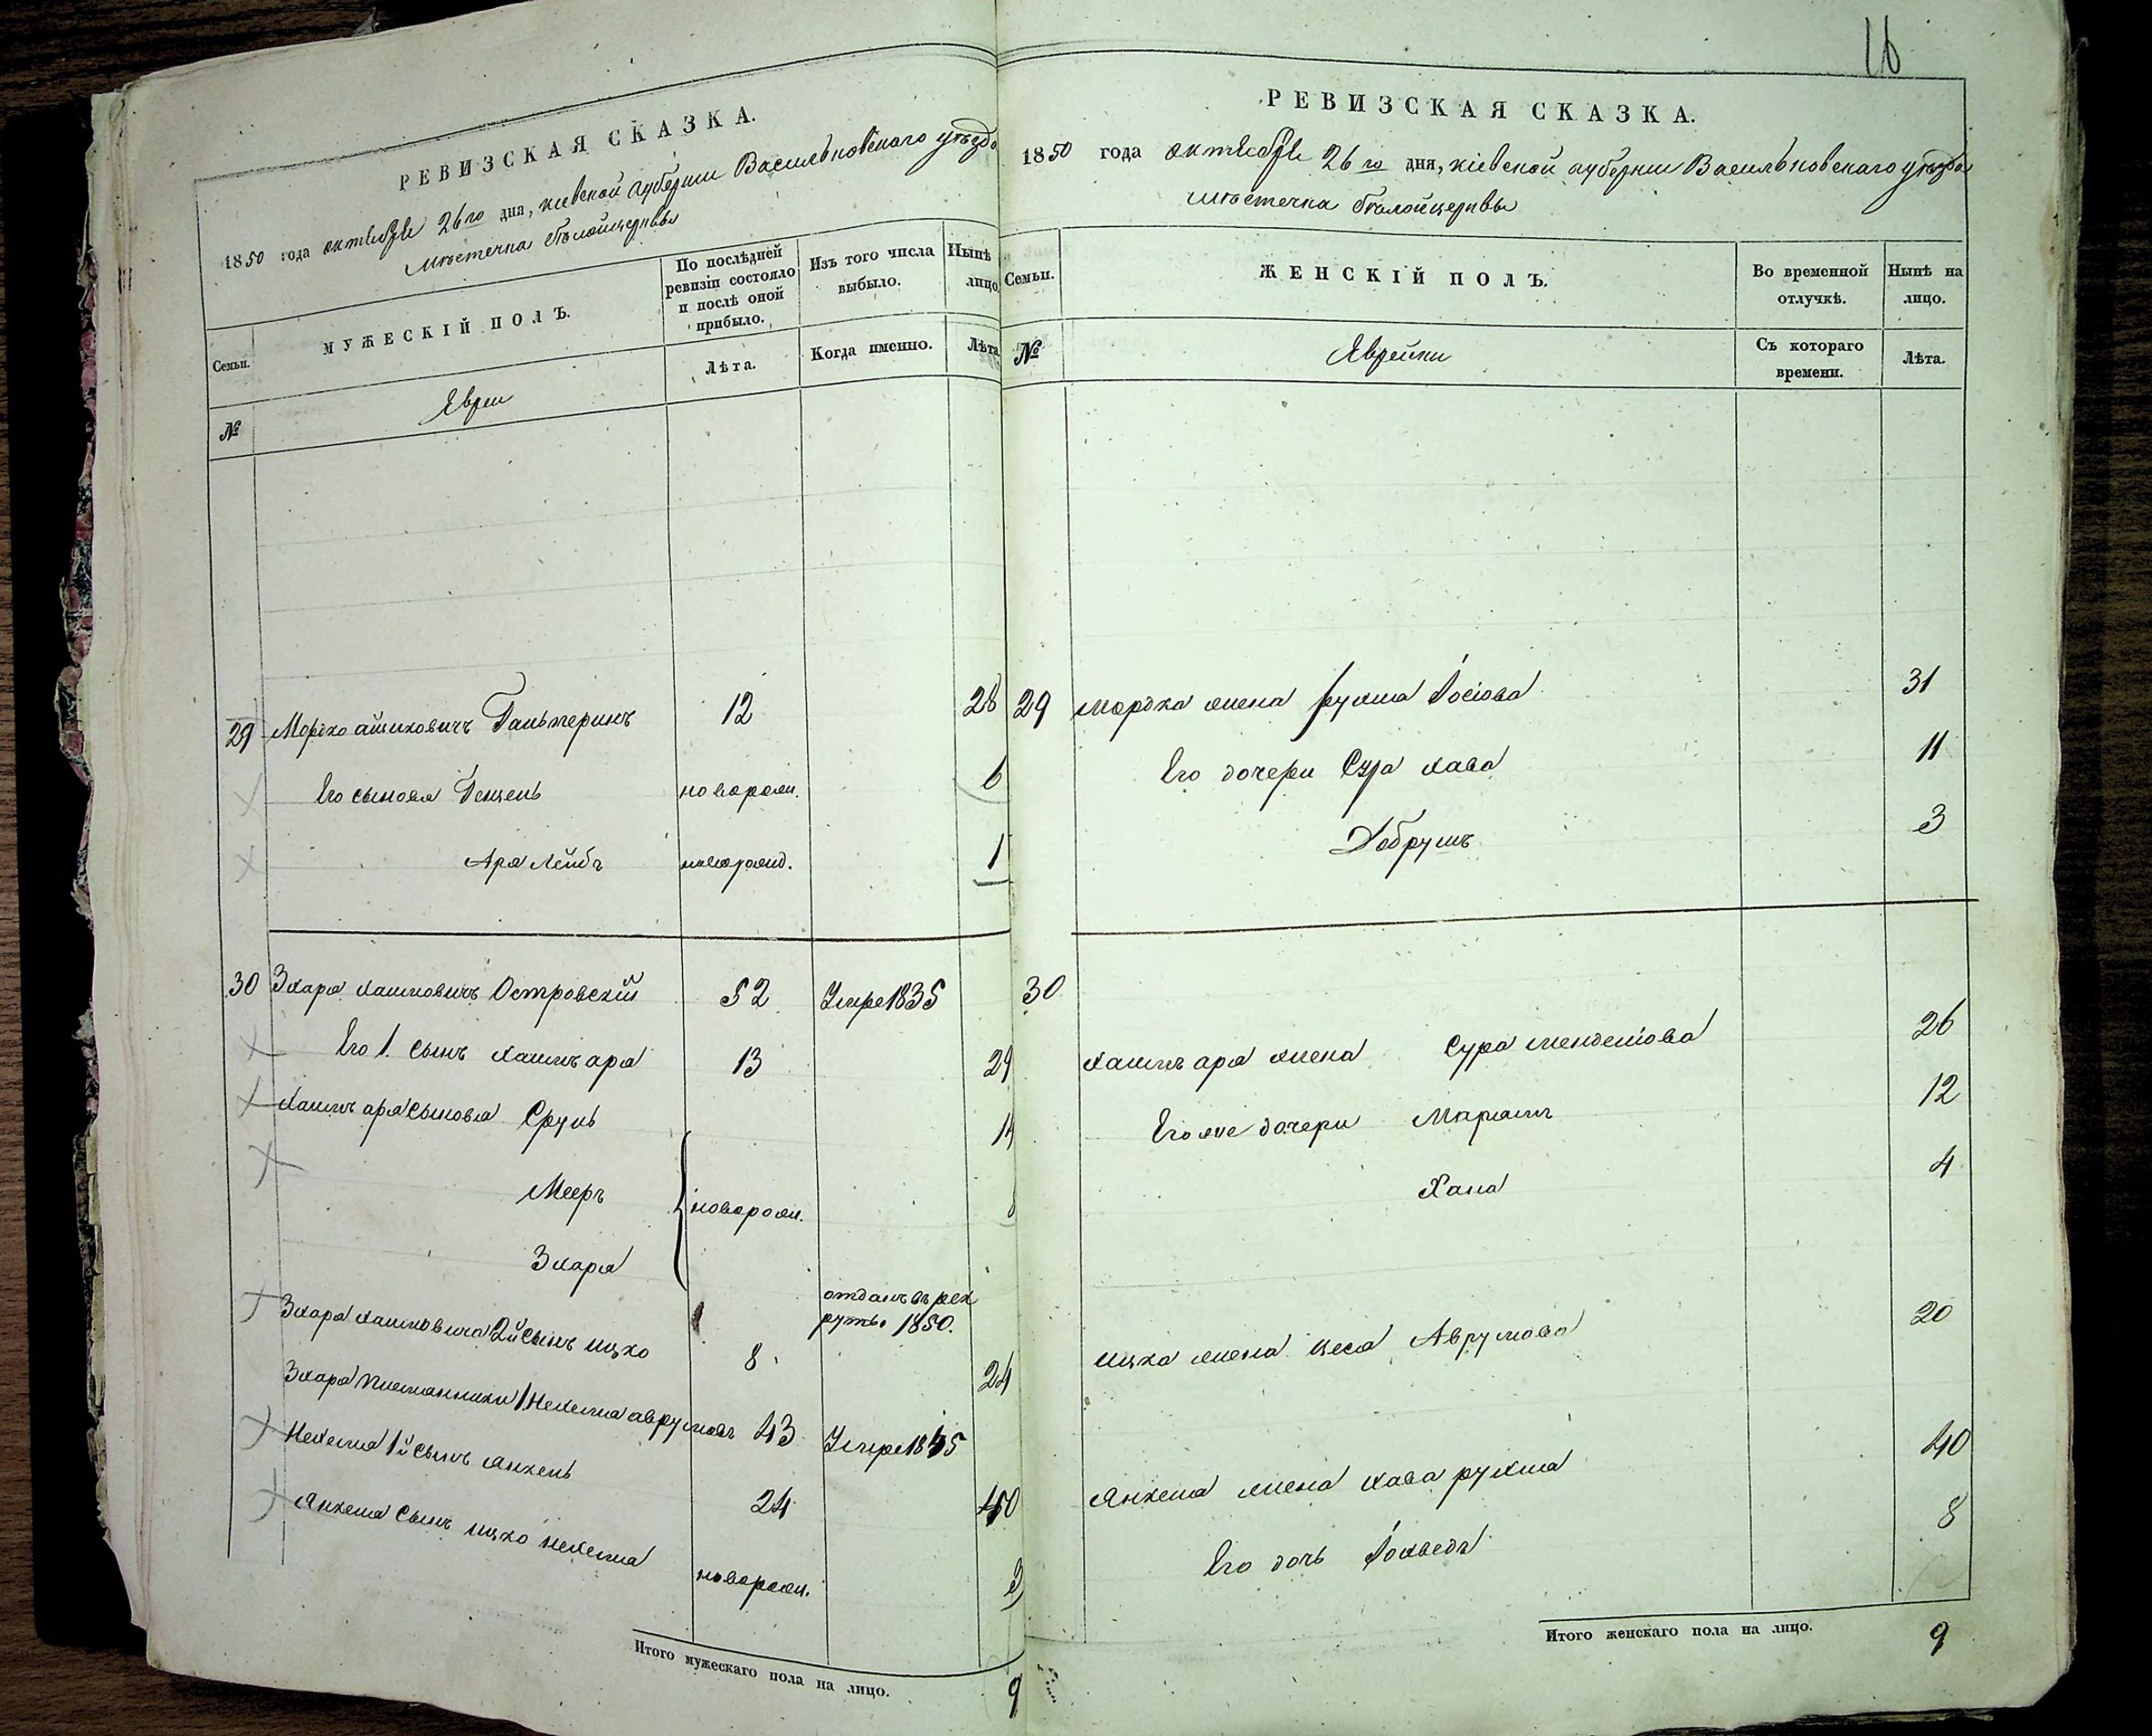 РЕВИЗСКАЯ СКАЗКА.
1850 года октября 26го дня, кіевской губерніи Васильковского уѣзда
мѣстечка бѣлойцеркви
Семьи.
МУЖЕСКІЙ ПОЛЪ.
По послѣдней
ревизіи состояло
и послѣ оной
прибыло.
Изъ того числа
выбыло.
Нынѣ
лицо.
№
Евреи
Лѣта.
Когда именно.
Лѣта
29 Мордко Гальперинъ 12 28
Его сыновя новорож. 6
Аря Лейбъ новорожд. 1
30 Зхаря Хаимовичъ Островскій 52 Умре 1835
Его 1. сынъ Хаимъ аря 13 29
Хаимъ аря сыновя Сруль 14
Мееръ новорож.
Зхаря
отданъ въ рек
руты 1850.
Зхаря Хаимовича 2й сынъ ицко 8 24
Зхаря племянники 1. Нехема аврумовъ 43 Умре 1845
Нехема 1й сынъ Янкель 24 40
Янкеля сынъ ицко нехема новорож. 3
Итого мужескаго пола на лицо. 9
16
РЕВИЗСКАЯ СКАЗКА.
1850 года октября 26го дня, кіевской губерніи Васильковскаго уѣзда
мѣстечка бѣлойцеркви
Семьи.
ЖЕНСКІЙ ПОЛЪ.
Во временной
отлучкѣ.
Нынѣ на
лицо.
№
Еврейки
Съ котораго
времени.
Лѣта.
29 Мордка жена рухля Іосіова 31
Его дочери Сура хава 11
Добрушъ 3
30
Хаимъ аря жена Сура менделіова 26
Его же дочери Мирямъ 12
Хана 4
ицка жена Аврумова 20
Янкеля жена хава рухля 40
Его дочь Іохведъ 8
Итого женскаго пола на лицо. 9